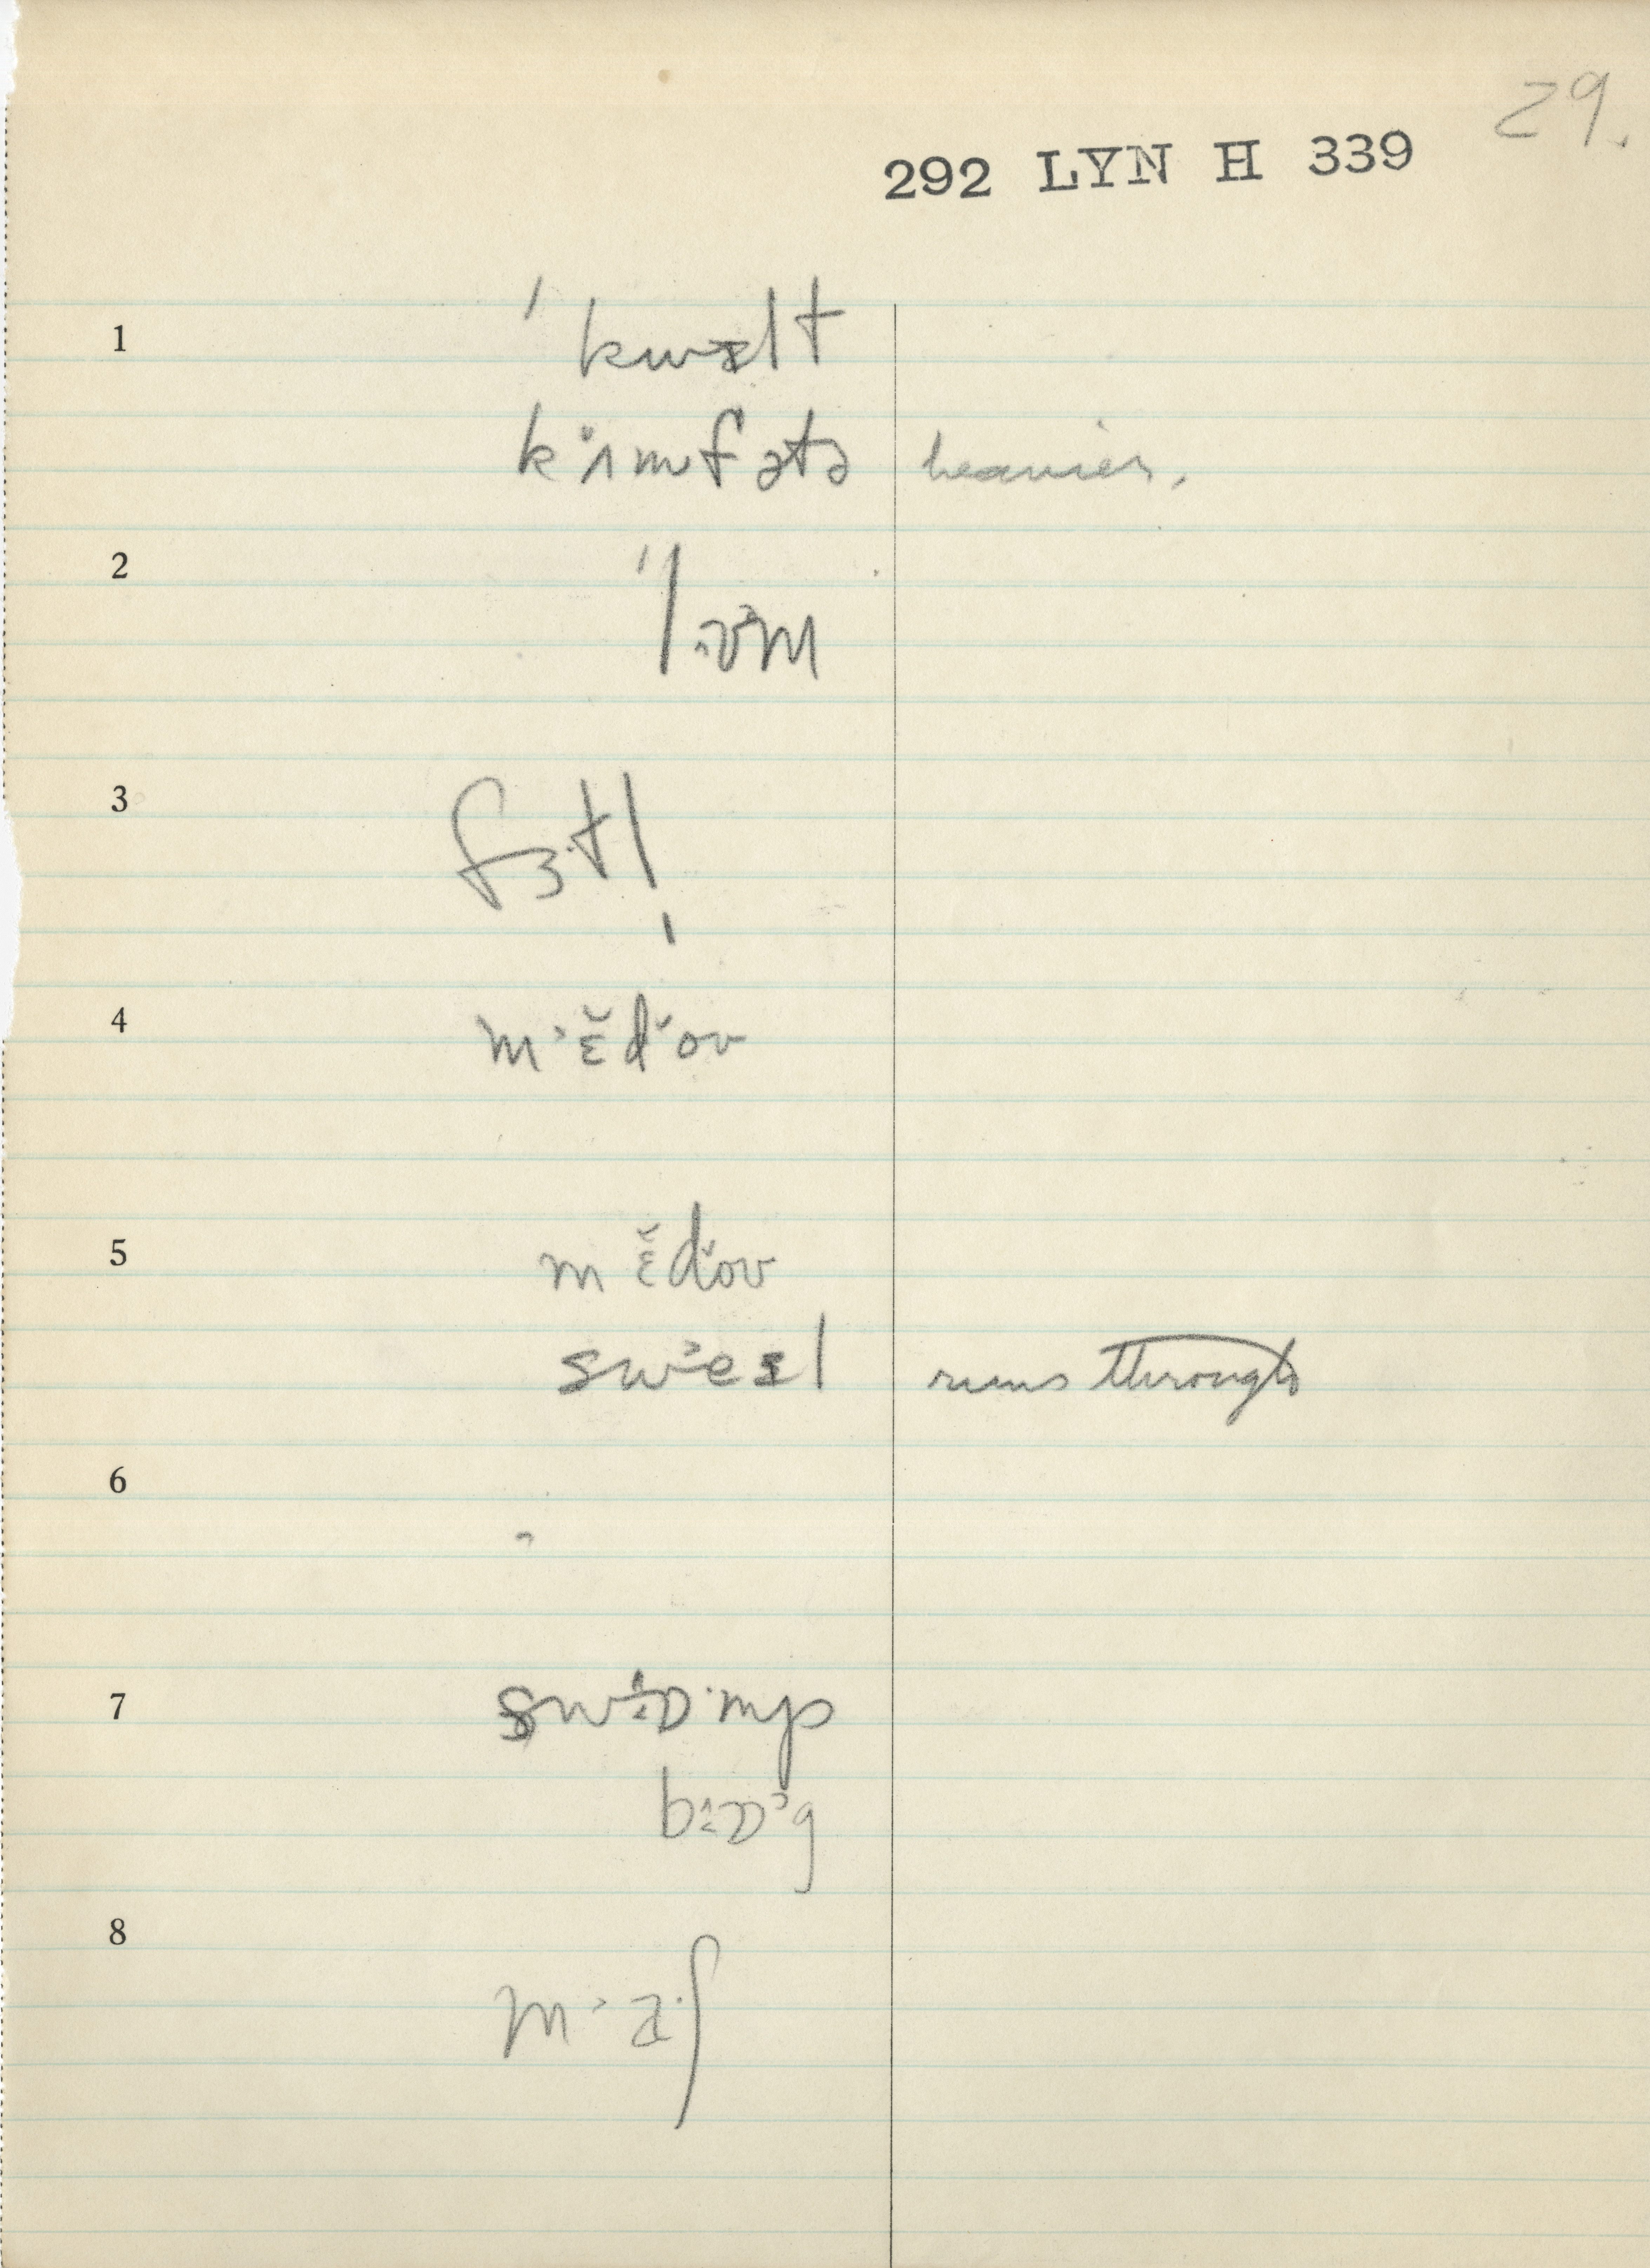 29.
292 LYN H 339
1 ˈkwɪlt
kʌmfətə heavier.
2
3 fɜ·tl
4 m˃ɛ̆d̆oʊ
5 mɛ̆d̆oʊ
sw˃eɪl runs through
6
7 swɒ·mp
8 m˃a·ʃ